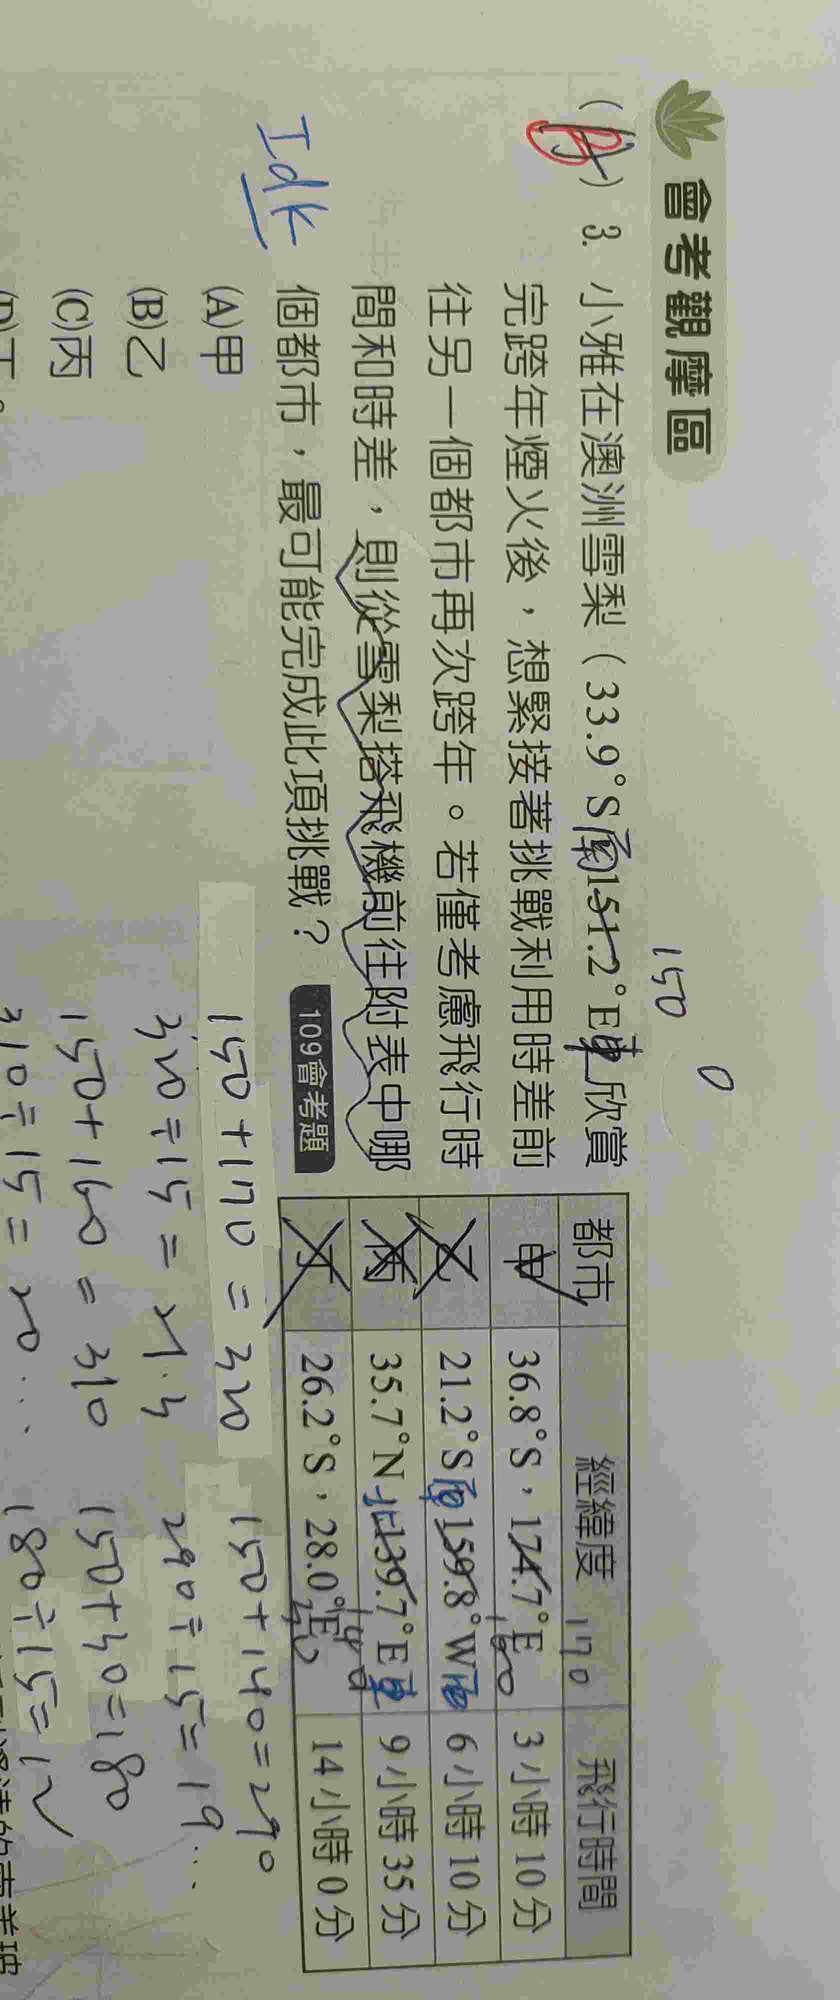 會考觀摩區
(B) 3. 小雅在澳洲雪梨（33.9°S南151.2°E東欣賞
完跨年煙火後，想緊接著挑戰利用時差前
往另一個都市再次跨年。若僅考慮飛行時
間和時差，則從雪梨搭飛機前往附表中哪
個都市，最可能完成此項挑戰？ 109會考題
(A)甲
(B)乙
(C)丙
(D)丁。
Idk
150
0
都市 經緯度 飛行時間
170
甲 36.8°S，174.7°E 3小時10分
160
乙 21.2°S南159.8°W西 6小時10分
丙 35.7°N北139.7°E東 9小時35分
140
丁 26.2°S，28.0°E 14小時0分
30
150+170=320
320÷15=21.3
150+160=310
310÷15=20...
150+140=290
290÷15=19...
150+30=180
180÷15=12